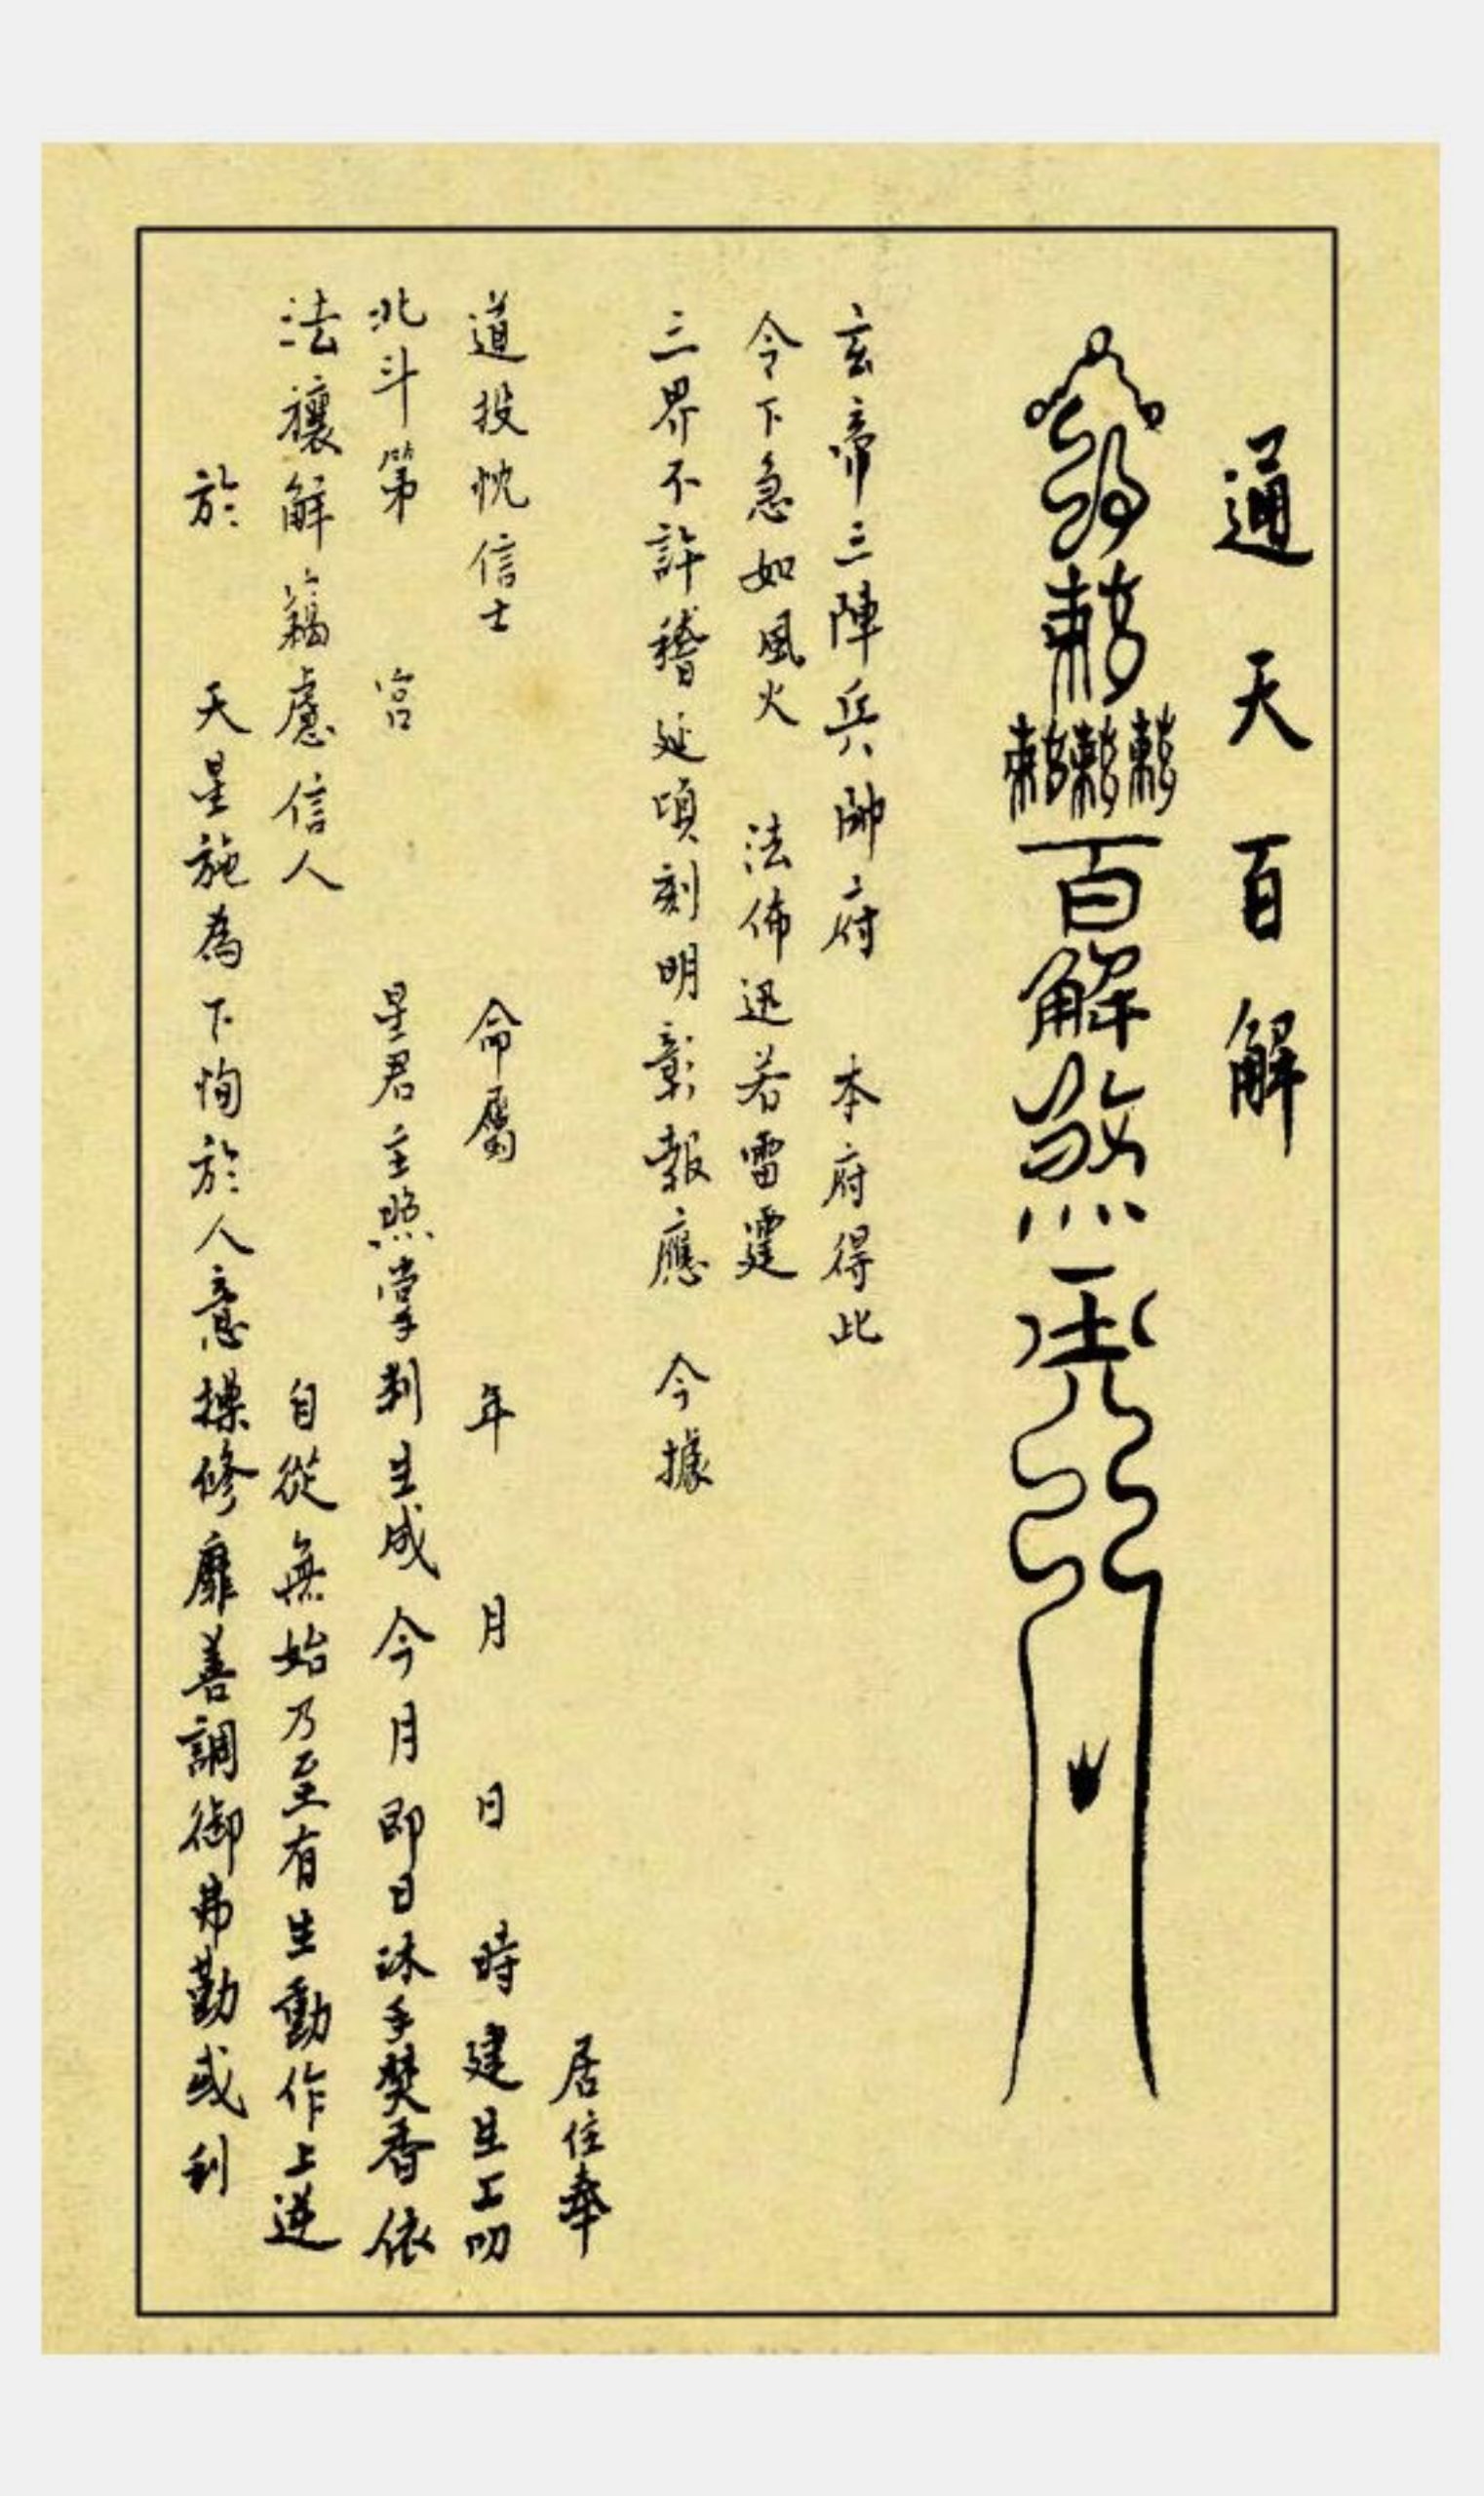 通天百解
敕令
敕敕敕
百解煞
玄帝三陣兵帥府 本府得此
令下急如風火 法佈迅若雷霆
三界不許稽延頃刻明彰報應 今據
居住奉
道投忱信士 命屬 年 月 日 時建生上叨
北斗第 宮 星君主照掌判生成 今月即日沐手焚香依
法禳解 籲慮信人 自從無始乃至有生動作上逆
於 天星施為下恂於人意操修靡善調御弗勤或刊